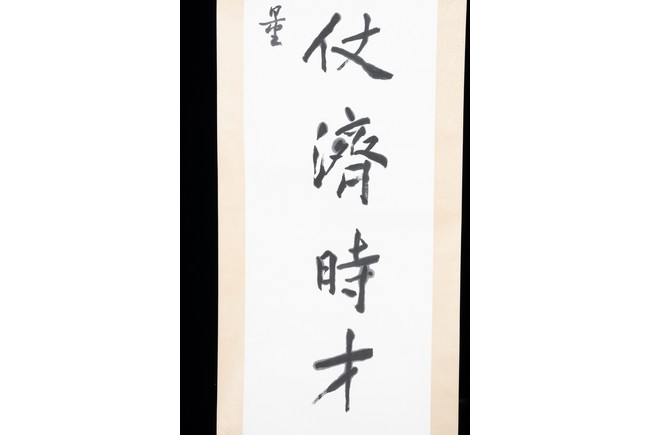 仗濟時才
量